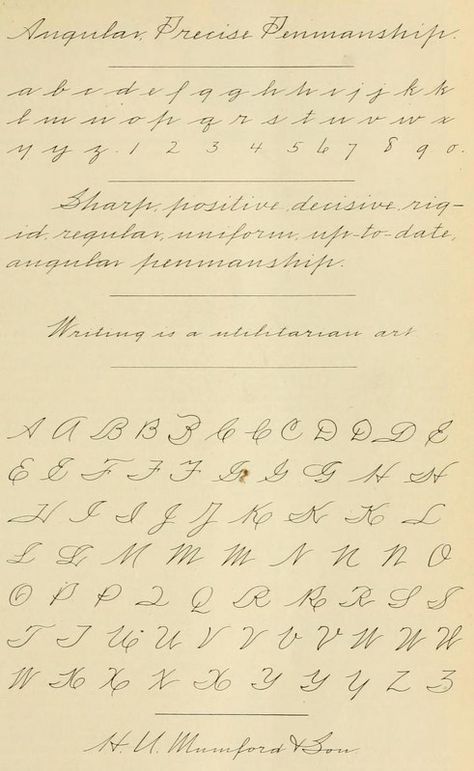 Angular, Precise Penmanship.
a b c d e f g g h h i j j k k
l m n o p q r s t u v w x
y y z. 1 2 3 4 5 6 7 8 9 0.
Sharp, positive, decisive, rig-
id, regular, uniform, up-to-date,
angular penmanship.
Writing is a utilitarian art
A A B B B C C C D D D E
E E F F F G G G H H
H I I J J K K K L
L L M M M N N N O
O P P Q Q R R R S S
T T U U V V V V W W W
W X X X X Y Y Y Z Z
H. U. Mumford & Son.